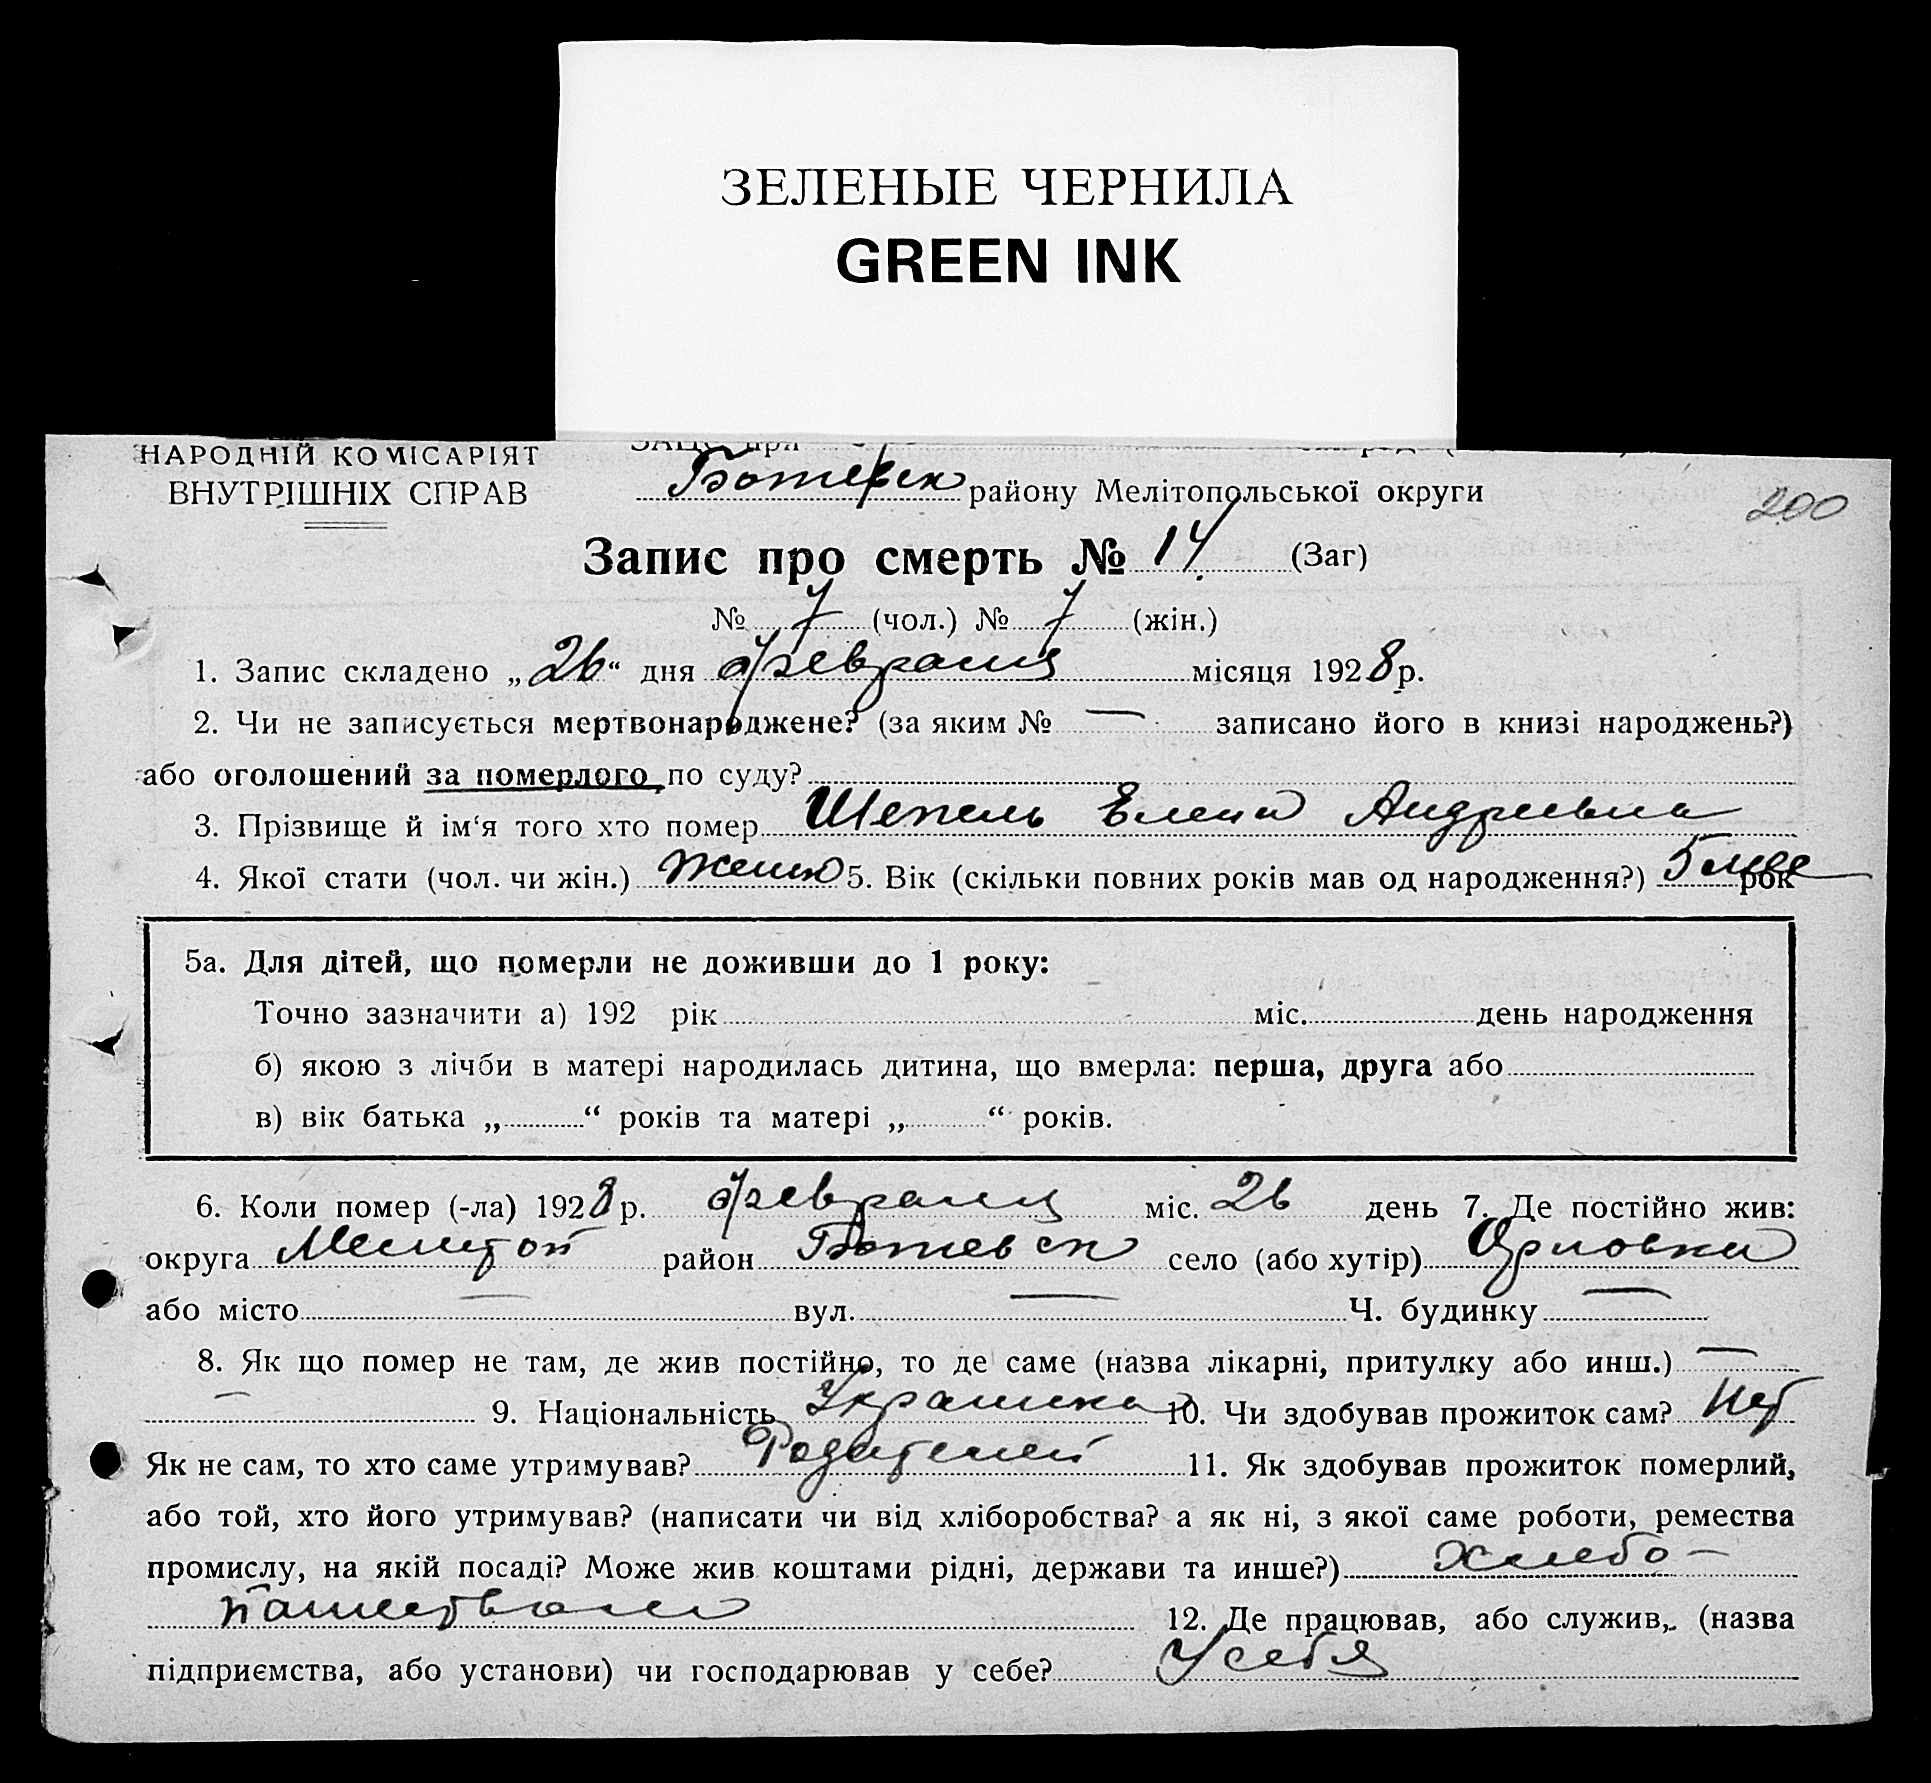 ЗЕЛЕНЫЕ ЧЕРНИЛА
GREEN INK
НАРОДНІЙ КОМІСАРІЯТ
ВНУТРІШНІХ СПРАВ
ЗАЦС при
Ботевск району Мелітопольської округи
200
Запис про смерть № 14 (Заг)
№ 7 (чол.) № 7 (жін.)
1. Запис складено „26“ дня февраля місяця 1928 р.
2. Чи не записується мертвонароджене? (за яким № — записано його в книзі народжень?)
або оголошений за померлого по суду?
3. Прізвище й ім‘я того хто помер Шепель Елена Андреевна
4. Якої стати (чол. чи жін.) женск 5. Вік (скільки повних років мав од народження?) 5 рок
5а. Для дітей, що померли не доживши до 1 року:
Точно зазначити а) 192 рік міс. день народження
б) якою з лічби в матері народилась дитина, що вмерла: перша, друга або
в) вік батька „ “ років та матері „ “ років.
6. Коли помер (-ла) 1928 р. февраля міс. 26 день 7. Де постійно жив:
округа Мелитоп район Ботевск село (або хутір) Орловка
або місто — вул. — Ч. будинку —
8. Як що помер не там, де жив постійно, то де саме (назва лікарні, притулку або инш.) —
— 9. Національність Украинка 10. Чи здобував прожиток сам? Нет
Як не сам, то хто саме утримував? Родителей 11. Як здобував прожиток померлий,
або той, хто його утримував? (написати чи від хліборобства? а як ні, з якої саме роботи, ремества
промислу, на якій посаді? Може жив коштами рідні, держави та инше?) Хлебо-
пашеством 12. Де працював, або служив, (назва
підприємства, або установи) чи господарював у себе? У себя